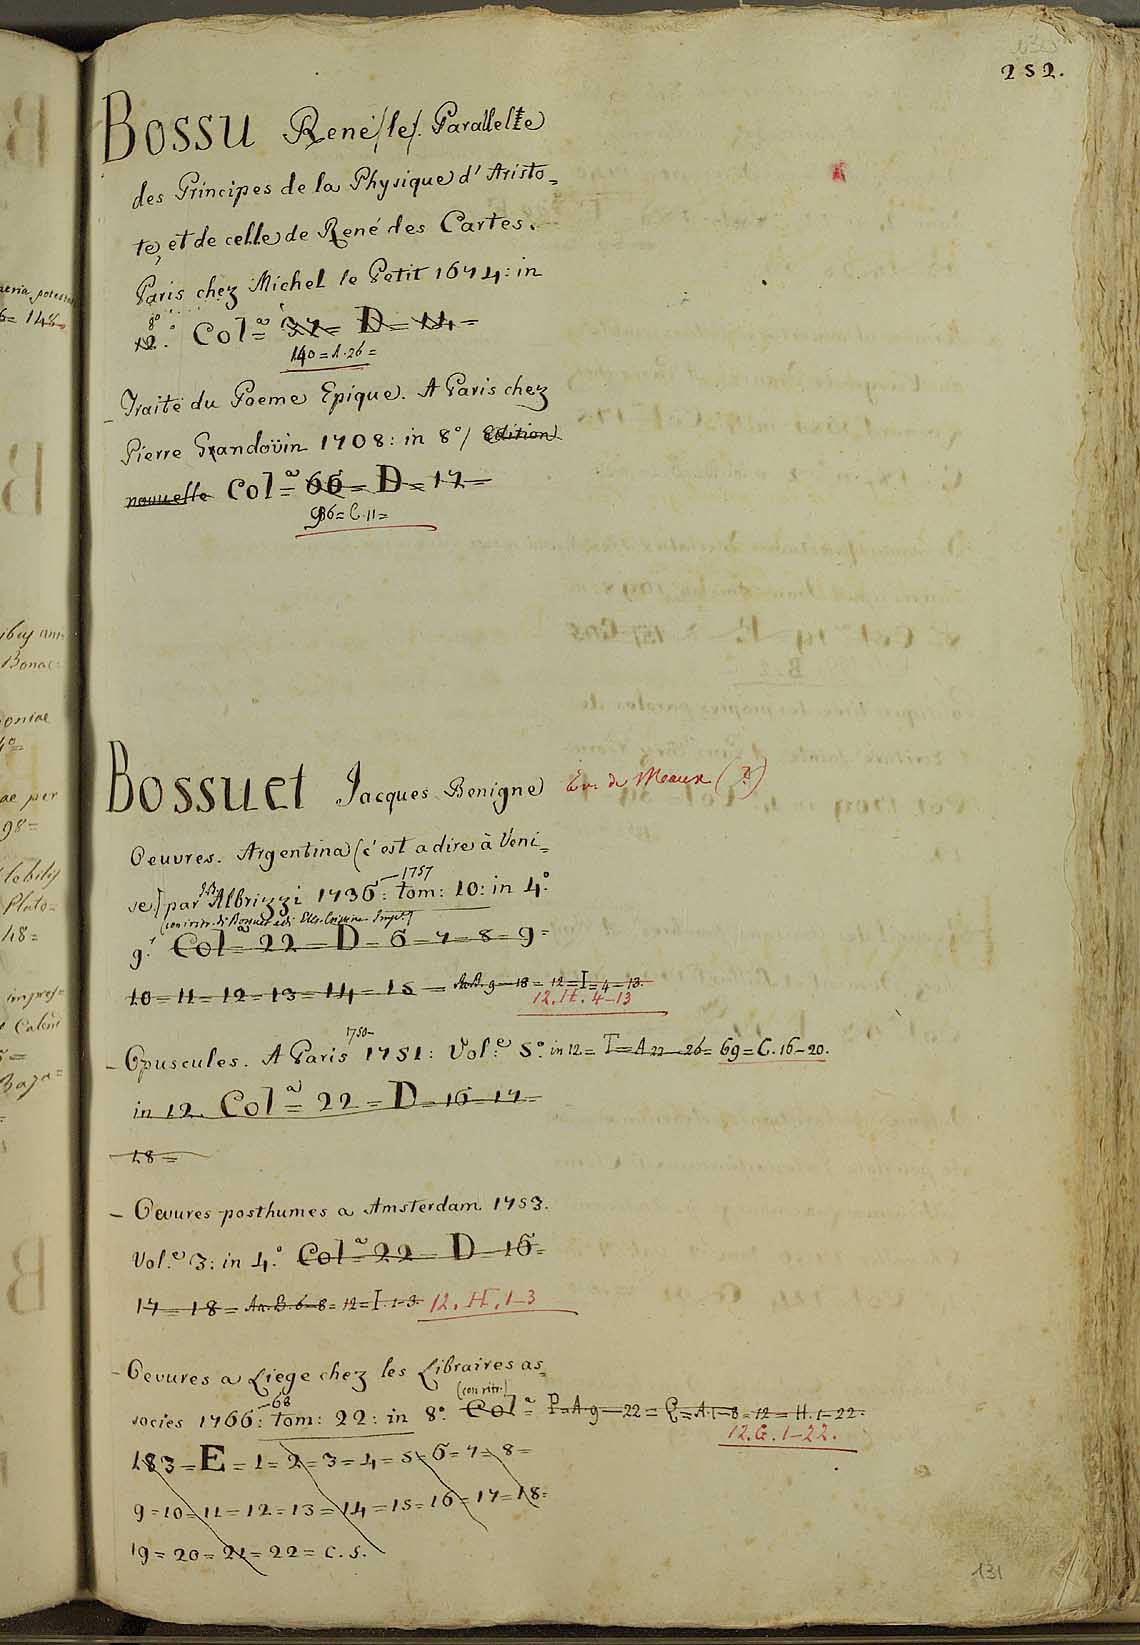 252.
Bossu René (le). Parallelle
des Principes de la Physique d'Aristo=
te, et de celle de René des Cartes.
Paris chez Michel le Petit 1674: in
8º
12º. Colª= 37= D= 14=
140=A.26=
- Traité du Poeme Epique. A Paris chez
Pierre Grandoüin 1708: in 8º/ Edition
nouuelle Colª= 66= D= 17=
96=C.11=
Bossuet Jacques Benigne Ev. de Meaux (?)
Oeuvres. Argentina (c'est a dire à Veni=
se) par J.B. Albrizzi 1736-1757: tom: 10: in 4º
9. Colª= 22= D= 6= 7= 8= 9=
10= 11= 12= 13= 14= 15= 9-18= 12=I=4-13.
12.H. 4-13
- Opuscules. A Paris 1750- 1751: Vol.e 5º. in 12= T=A 22-26= 69=C.16-20.
in 12. Colª= 22= D=16=17=
18=
- Oevures posthumes a Amsterdam 1753.
Vol.e 3: in 4º. Colª=22= D=16=
17=18= An.B.6-8=12=I.1-3. 12.H.1-3
- Oevures a Liege chez les Libraires as=
(con ritr.)
socies 1766-68: tom: 22: in 8º. Colª= P=A 9-22= Q=A.1-8=12=H.1-22.
12.G.1-22.
183=E=1=2=3=4=5=6=7=8=
9=10=11=12=13=14=15=16=17=18=
19=20=21=22= c.s.
131